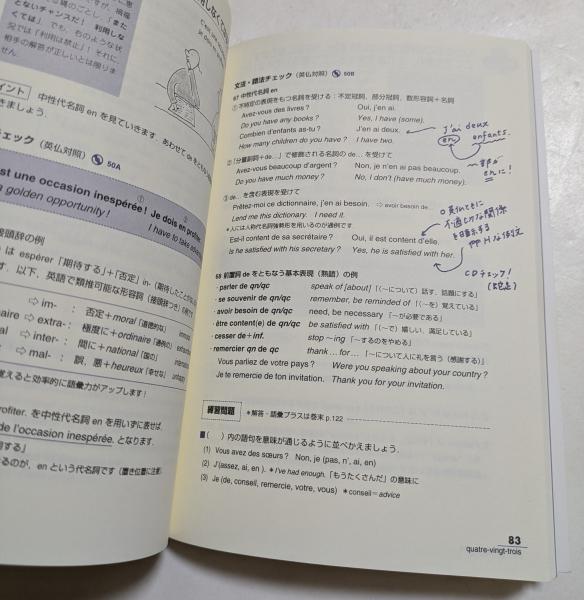 とないチャンスだ！ 利用しな
くては」でも、右のような状
況では「利用は禁止」！それに
相手の解答が正しいとは限りま
せん。
中性代名詞 en を見ていきます。あわせて de を
きましょう.
チェック（英仏対照） 50A
est une occasion inespérée ! Je dois en profiter.
a golden opportunity !
I have to take
接頭辞の例
は espérer「期待する」＋「否定」in-
す．以下，英語で類推可能な形容詞
⇨ im- ： 否定＋moral「道徳的な」
⇨ extra- ： 極度に＋ordinaire
⇨ inter- ： 間に＋national「国の」
⇨ mal- ： 誤，悪＋heureux「幸せな」
覚えると効率的に語彙力がアップします！
profiter. を中性代名詞 en を用いずに表せば，
de l'occasion inespérée. となります．
するのが，en という代名詞です
文法・語法チェック（英仏対照） 50B
67 中性代名詞 en
①不特定の表現をもつ名詞を受ける：不定冠詞，部分冠詞，数形容詞＋名詞
Avez-vous des livres ? Oui, j'en ai.
Do you have any books ? Yes, I have (some).
Combien d'enfants as-tu ? J'en ai deux.
How many children do you have ? I have two.
②「分量副詞＋de…」で修飾される名詞の de… を受けて
Avez-vous beaucoup d'argent ? Non, je n'en ai pas beaucoup.
Do you have much money ? No, I don't (have much money).
③ de… を含む表現を受けて
Prêtez-moi ce dictionnaire, j'en ai besoin. ⇨ avoir besoin de…
Lend me this dictionary. I need it.
＊人には人称代名詞強勢形を用いるのが通例です
Est-il content de sa secrétaire ? Oui, il est content d'elle.
Is he satisfied with his secretary ? Yes, he is satisfied with her.
J'ai deux
en enfants.
CDチェック！
68 前置詞 de をともなう基本表現（熟語）の例
・parler de qn/qc speak of [about]「（〜について）話す，話題にする」
・se souvenir de qn/qc remember, be reminded of「（〜を）覚えている」
・avoir besoin de qn/qc need, be necessary「〜が必要である」
・être content(e) de qn/qc be satisfied with「（〜で）嬉しい，満足している」
・cesser de＋inf. stop 〜ing「〜するのをやめる」
・remercier qn de qc thank … for…「〜について人に礼を言う（感謝する）」
Vous parliez de votre pays ? Were you speaking about your country ?
Je te remercie de ton invitation. Thank you for your invitation.
練習問題 ＊解答・語彙プラスは巻末 p.122
■（ ）内の語句を意味が通じるように並べかえましょう．
(1) Vous avez des sœurs ? Non, je (pas, n', ai, en)
(2) J'(assez, ai, en ). ＊I've had enough.「もうたくさんだ」の意味に
(3) Je (de, conseil, remercie, votre, vous) ＊conseil＝advice
83
quatre-vingt-trois